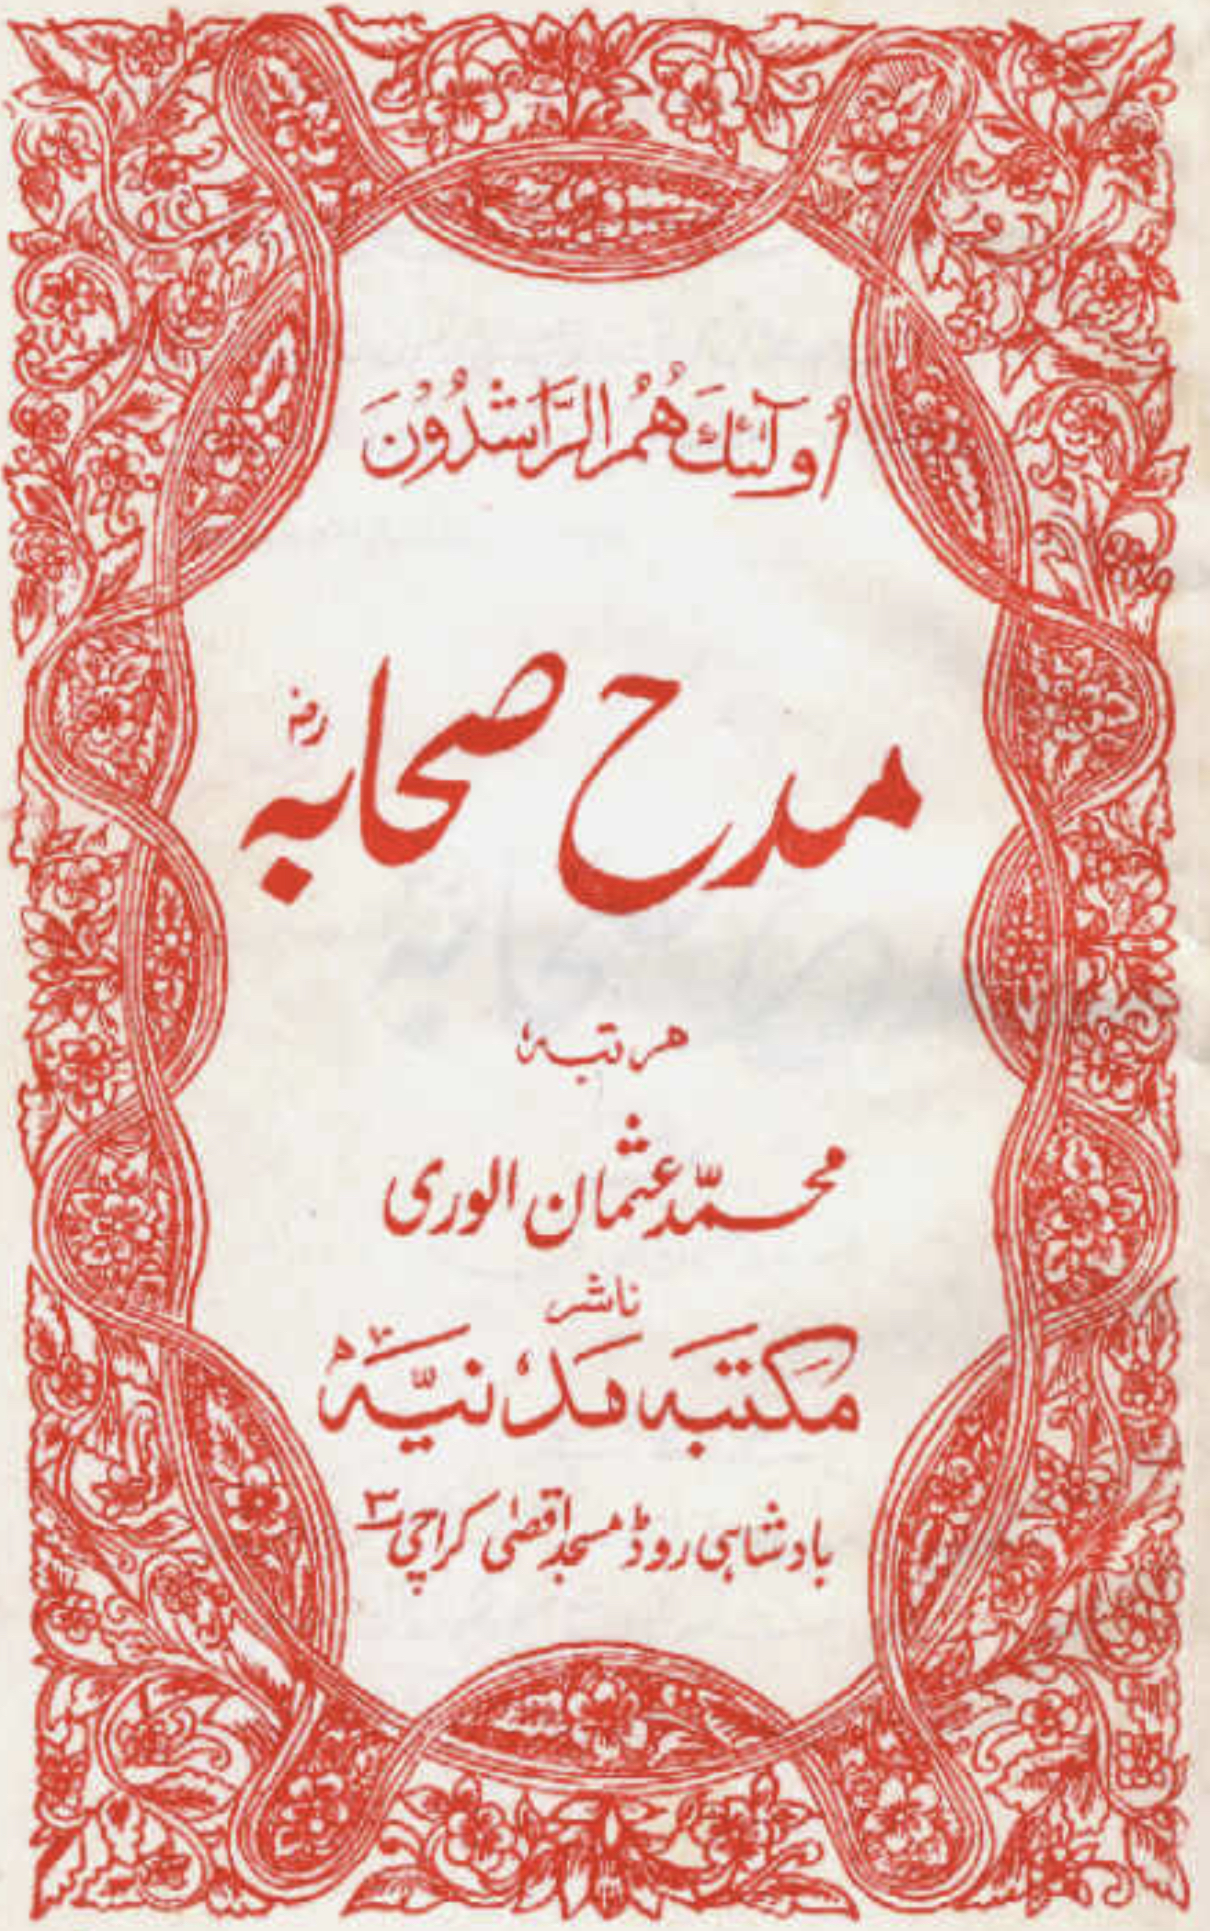 اُولٰٓئِكَ هُمُ الرَّاشِدُوْنَ
مدحِ صحابہؓ
مرتبہ
محمّد عثمان الوری
ناشر
مکتبہ مدنیّہ
بادشاہی روڈ مسجد اقصٰی کراچی ۳